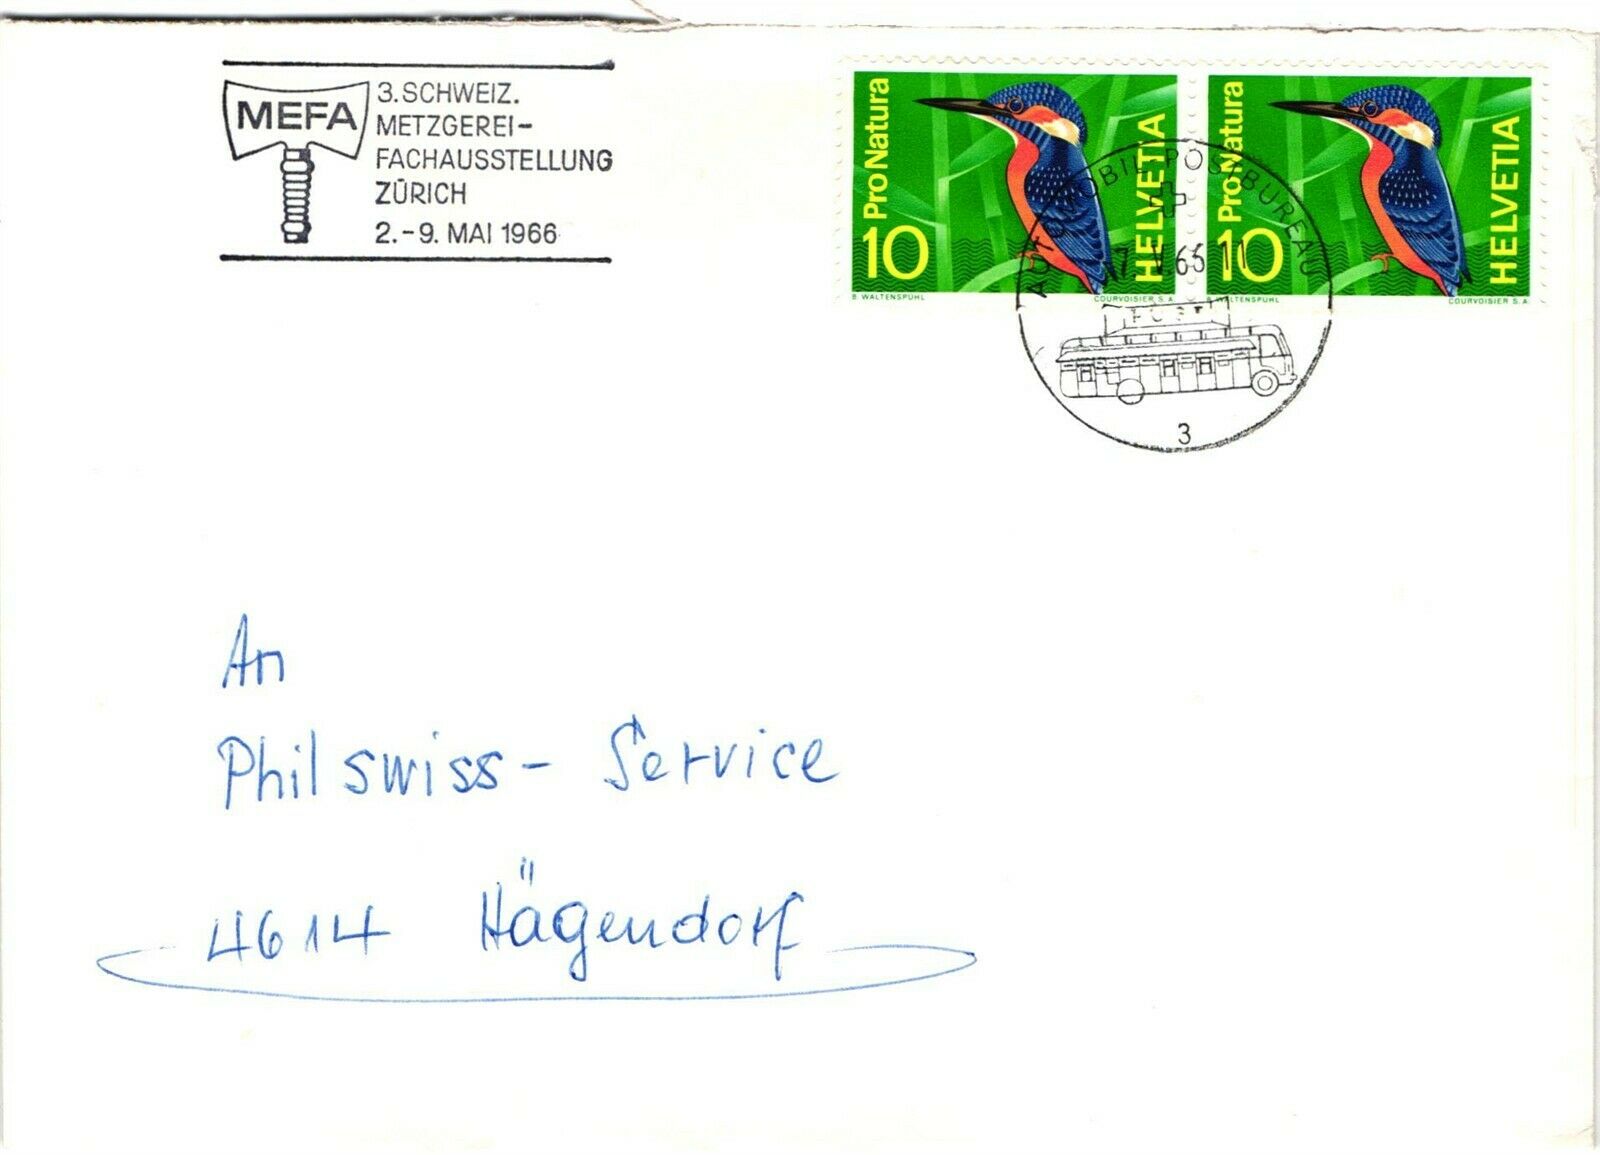 MEFA
3. SCHWEIZ.
METZGEREI-
FACHAUSSTELLUNG
ZÜRICH
2.-9. MAI 1966
Pro Natura
10
HELVETIA
B. WALTENSPÜHL
COURVOISIER S.A.
Pro Natura
10
HELVETIA
B. WALTENSPÜHL
COURVOISIER S.A.
AUTOMOBIL-POSTBUREAU
7. V. 66 11
POST
3
An
Philswiss-Service
4614 Hägendorf